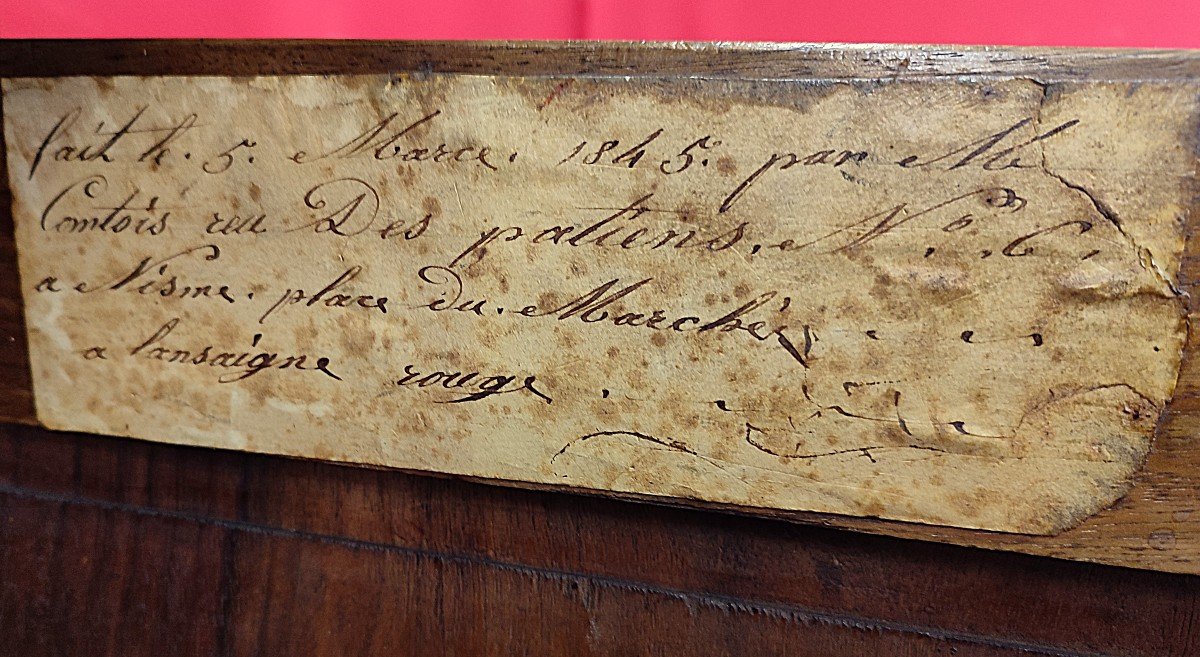 fait le. 5. Marce. 1845. par M
Comtois reu Des patiens. N.o 6.
a Nisme. place du. Marchéz
a lansaigne rouge.